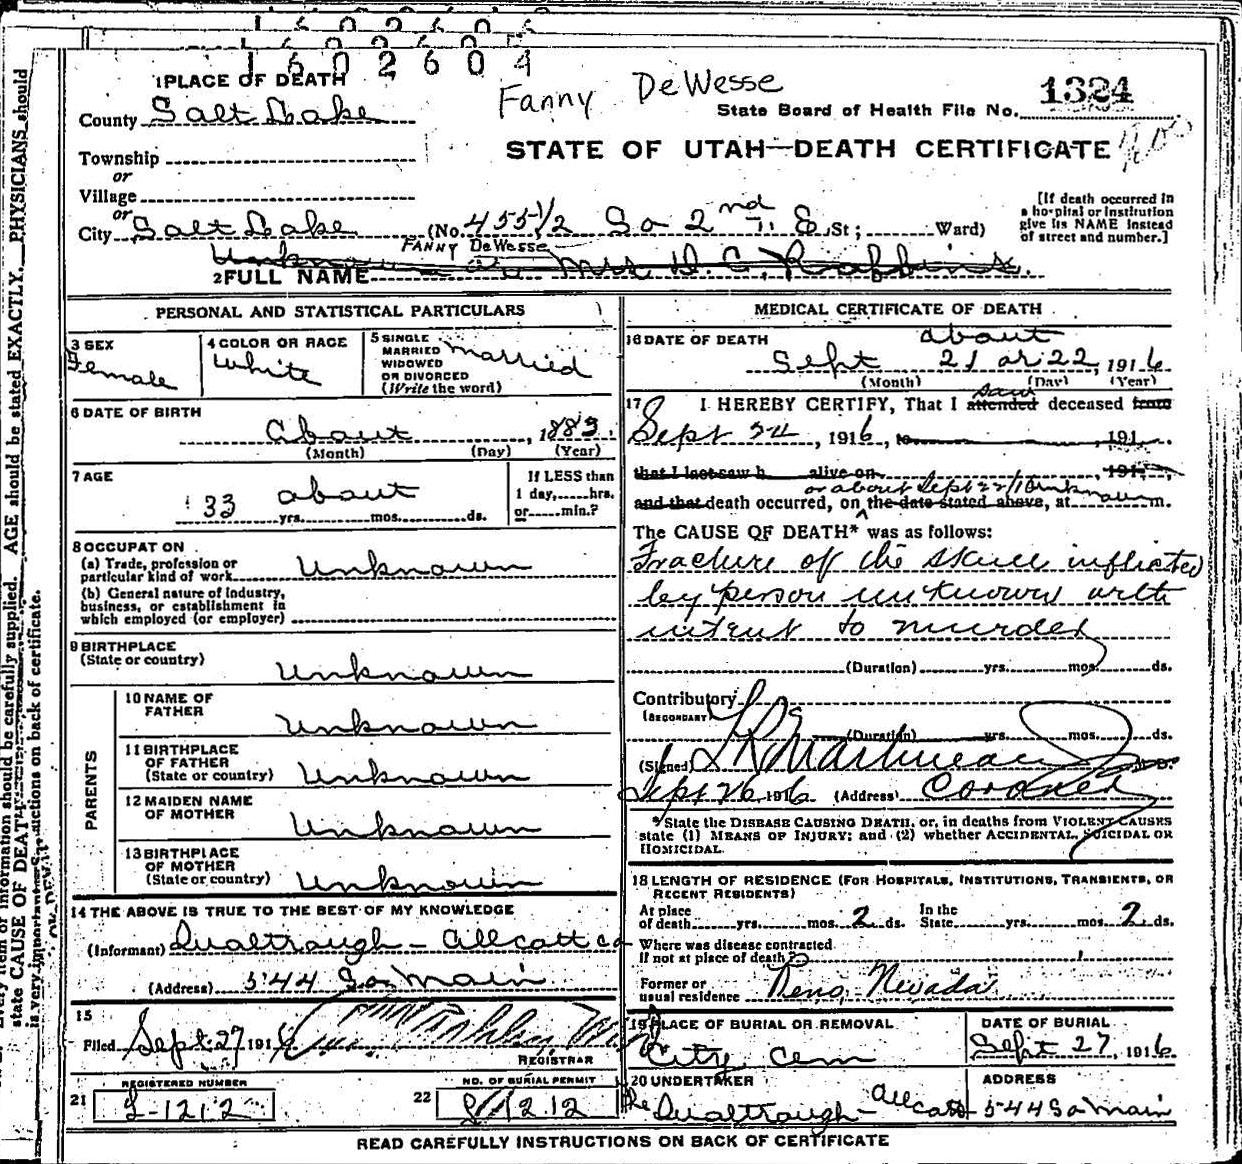 1 6 0 2 6 0 4
1 PLACE OF DEATH
Fanny DeWesse
1324
County Salt Lake
State Board of Health File No.
Township
STATE OF UTAH—DEATH CERTIFICATE
or
Village
or
City Salt Lake (No. 455 1/2 So 2nd E St; Ward)
[If death occurred in a hospital or institution give its NAME instead of street and number.]
FANNY DeWesse
Unknown or Mrs H. C. Robbins.
2 FULL NAME
PERSONAL AND STATISTICAL PARTICULARS
3 SEX
Female
4 COLOR OR RACE
White
5 SINGLE
MARRIED
WIDOWED
OR DIVORCED
(Write the word)
Married
6 DATE OF BIRTH
About, 1883.
(Month) (Day) (Year)
7 AGE
33 about
yrs. mos. ds.
If LESS than
1 day, hrs.
or min.?
8 OCCUPATION
(a) Trade, profession or
particular kind of work Unknown
(b) General nature of industry,
business, or establishment in
which employed (or employer)
9 BIRTHPLACE
(State or country)
Unknown
PARENTS
10 NAME OF
FATHER
Unknown
11 BIRTHPLACE
OF FATHER
(State or country) Unknown
12 MAIDEN NAME
OF MOTHER
Unknown
13 BIRTHPLACE
OF MOTHER
(State or country) Unknown
14 THE ABOVE IS TRUE TO THE BEST OF MY KNOWLEDGE
(Informant) Qualtrough - Allcott co
(Address) 544 So Main
15
Filed Sept 27 1916
REGISTRAR
REGISTERED NUMBER
21 L-1212
NO. OF BURIAL PERMIT
22 1212
MEDICAL CERTIFICATE OF DEATH
16 DATE OF DEATH about
Sept 21 or 22, 1916
(Month) (Day) (Year)
17 I HEREBY CERTIFY, That I attended saw deceased from
Sept 24, 1916, to 191
that I last saw h alive on, 191
or about Sept 22/16 unknown
and that death occurred, on the date stated above, at m.
The CAUSE OF DEATH* was as follows:
Fracture of the skull inflicted
by person unknown with
intent to murder
(Duration) yrs. mos. ds.
Contributory
(SECONDARY)
(Duration) yrs. mos. ds.
(Signed) L R Martineau Jr M. D.
Sept 26 1916 (Address) Coroner
* State the DISEASE CAUSING DEATH, or, in deaths from VIOLENT CAUSES
state (1) MEANS OF INJURY; and (2) whether ACCIDENTAL, SUICIDAL OR
HOMICIDAL.
18 LENGTH OF RESIDENCE (FOR HOSPITALS, INSTITUTIONS, TRANSIENTS, OR
RECENT RESIDENTS)
At place
of death yrs. mos. 2 ds.
In the
State yrs. mos. 2 ds.
Where was disease contracted
if not at place of death?
Former or
usual residence Reno, Nevada
19 PLACE OF BURIAL OR REMOVAL
City Cem
DATE OF BURIAL
Sept 27, 1916
20 UNDERTAKER
the Qualtrough-Allcott
ADDRESS
544 So Main
READ CAREFULLY INSTRUCTIONS ON BACK OF CERTIFICATE
item of information should be carefully supplied. AGE should be stated EXACTLY. PHYSICIANS should
state CAUSE OF DEATH
is very important. See instructions on back of certificate.